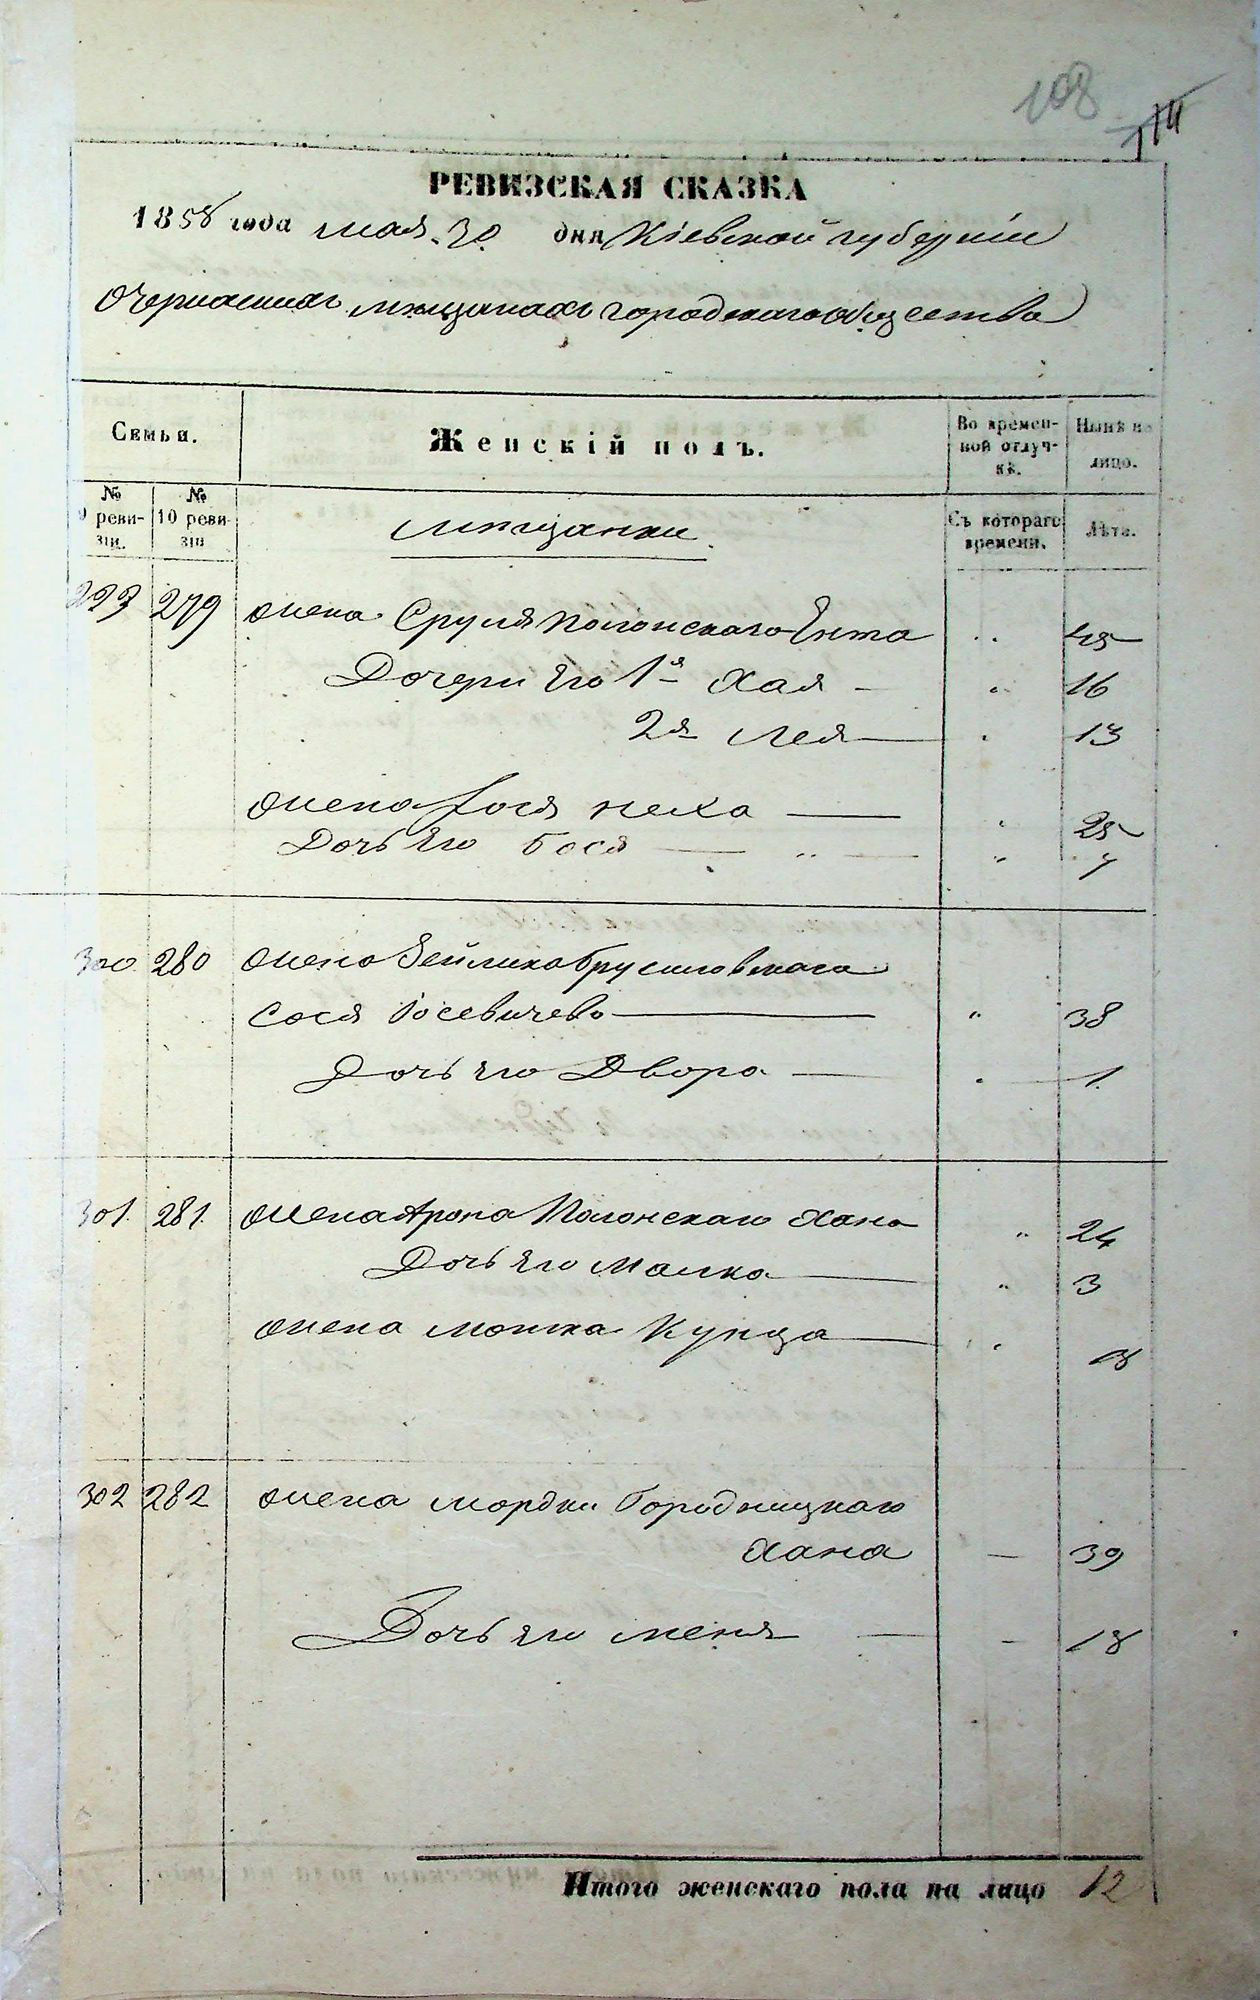 108
РЕВИЗСКАЯ СКАЗКА
1858 года мая 30 дня Кіевской губерніи
О черкаскихъ мѣщанахъ городскаго общества
Семьи.
Женскій полъ.
Во времен-
ной отлуч-
кѣ.
Нынѣ на
лицо.
№
9 реви-
зіи.
№
10 реви-
зіи
мѣщанки
Съ котораго
времени.
Лѣта.
279 жена Сруля Полонскаго Ента 45
Дочери его 1я Хая 16
2я Лея 13
жена неха 25
Дочь его Бося
300 280 жена Зейлика Брусиловскаго
Сося 38
Дочь его Двора 1.
301. 281. жена Арона Полонскаго Хана 24
Дочь его Малка 3
жена Мошка Кунца 18
302 282 жена Мордки Городницкаго
Хана 39
Дочь его Меня 18
Итого женскаго пола на лицо 12